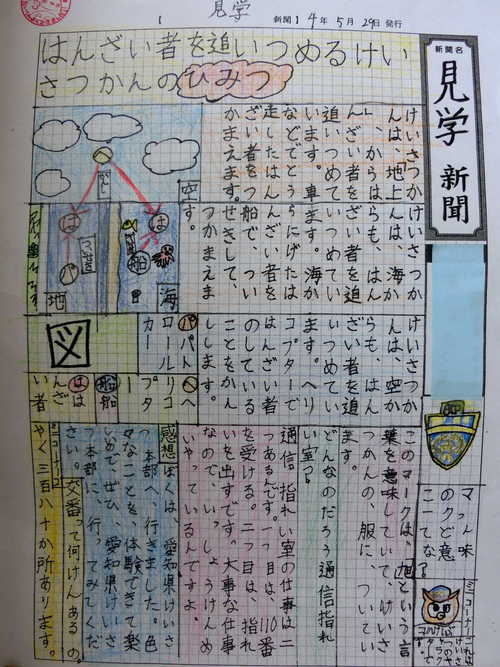 見学
【 新聞】4年5月29日発行
新聞名
見学新聞
はんざい者を追いつめるけい
さつかんのひみつ
けいさつか
んは、「地上
」からはん
ざい者を
追いつめて
います。車
などでどう
走したはん
ざい者を
かまえます。
けいさつか
んは、海か
らも、はん
ざい者を追
いつめてい
ます。海か
らにげたは
んざい者を
船で、つい
せきして、
つかまえま
す。
けいさつか
んは、空か
らも、はん
ざい者を
いつめてい
ます。ヘリ
コプターで
はんざい者
のしている
ことをかん
しします。
空
海
地
図
パパト
ロール
カー
ヘヘ
リコ
プタ
ー
船船
はは
んざ
い者
このマークは、旭という言
葉を意味していて、けいさ
つかんの、服に、ついてい
ます。
どんなのだろう通信指れ
い室?
通信指れい室の仕事は二
つあるんです。一つ目は、110番
を受ける。二つ目は、指れ
いを出すです。大事な仕事
なので、いっしょうけんめ
いやっているんですよ。
感想ぼくは、愛知県けいさ
つ本部へ、行きました。色
々なことを、体験できて楽
しいので、ぜひ、愛知県けいさ
つ本部に、行ってみてくだ
さい。
交番って何けんあるの
やく三百八十か所あります。
マーク
ミニコーナー
コノハけいぶ